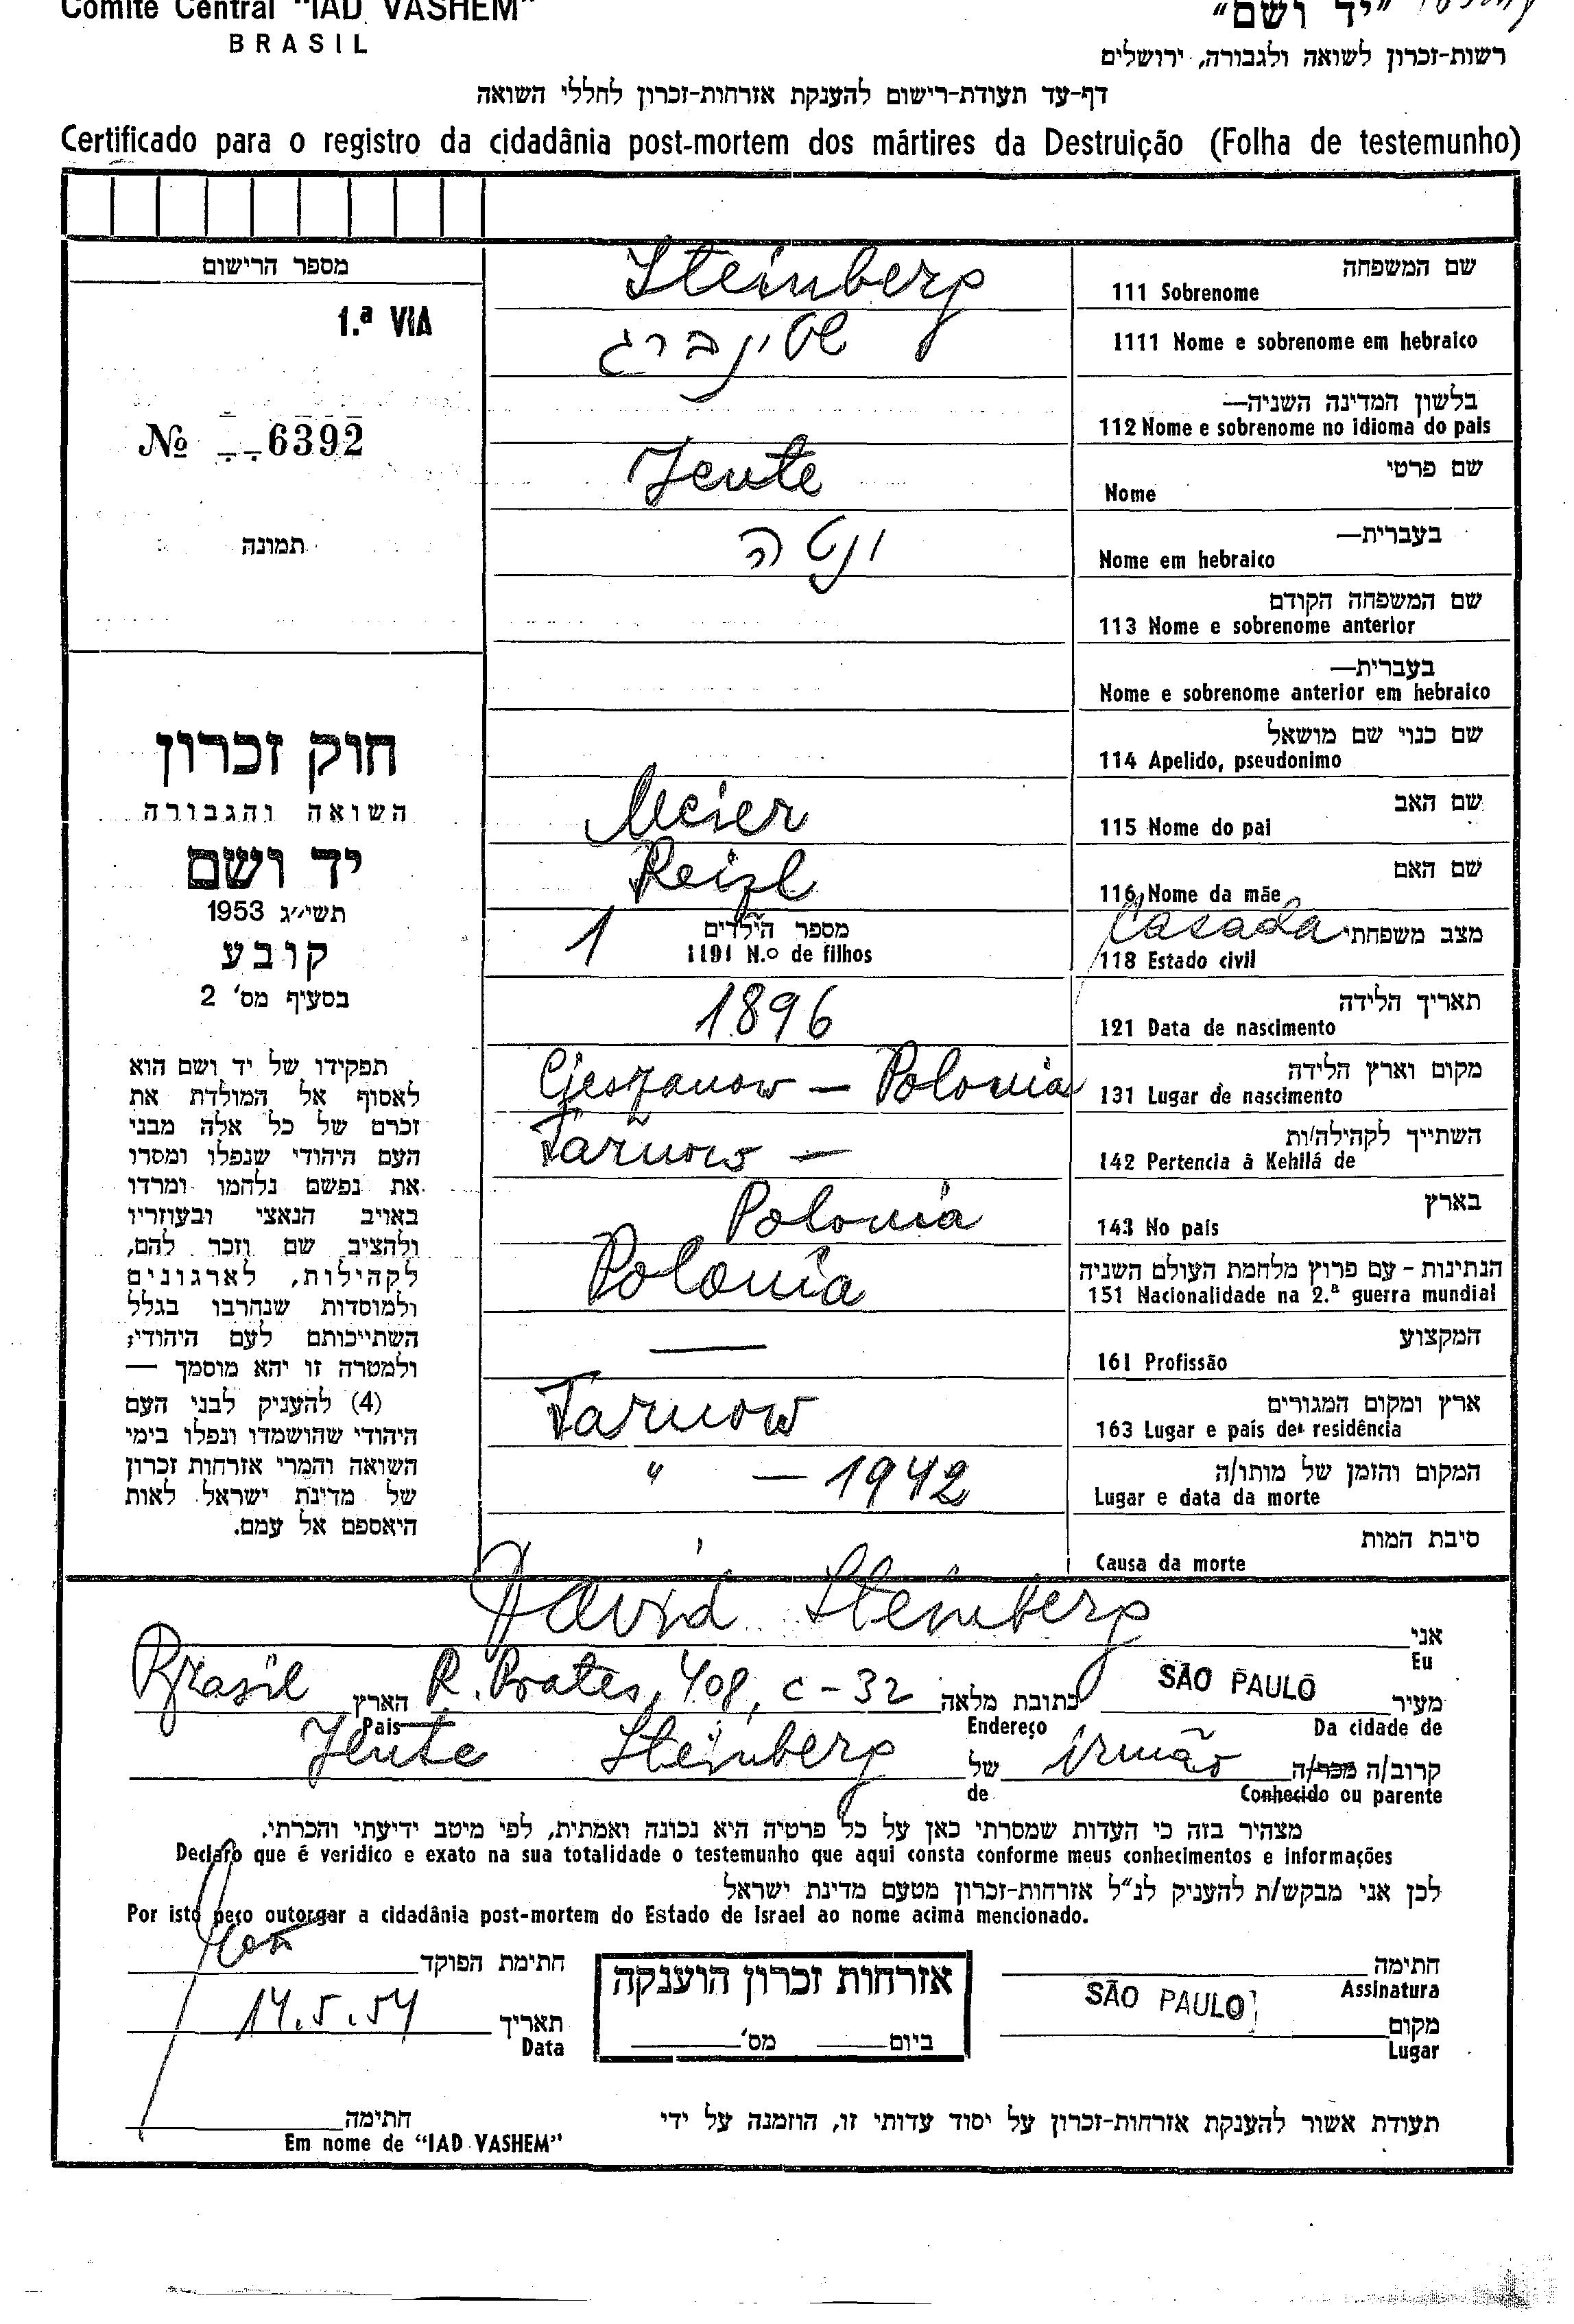 Comité Central "IAD VASHEM"
BRASIL
"יד ושם"
רשות-זכרון לשואה ולגבורה, ירושלים
דף-עד תעודת-רישום להענקת אזרחות-זכרון לחללי השואה
Certificado para o registro da cidadânia post-mortem dos mártires da Destruição (Folha de testemunho)
מספר הרישום
1.ª VIA
№ 6392
תמונה
חוק זכרון
השואה והגבורה
יד ושם
תשי״ג 1953
קובע
בסעיף מס' 2
תפקידו של יד ושם הוא
לאסוף אל המולדת את
זכרם של כל אלה מבני
העם היהודי שנפלו ומסרו
את נפשם נלחמו ומרדו
באויב הנאצי ובעוזריו
ולהציב שם וזכר להם,
לקהילות, לארגונים
ולמוסדות שנחרבו בגלל
השתייכותם לעם היהודי;
ולמטרה זו יהא מוסמך —
(4) להעניק לבני העם
היהודי שהושמדו ונפלו בימי
השואה והמרי אזרחות זכרון
של מדינת ישראל לאות
היאספם אל עמם.
שם המשפחה
111 Sobrenome Steinberg
1111 Nome e sobrenome em hebraico שטינברג
בלשון המדינה השניה—
112 Nome e sobrenome no idioma do pais
שם פרטי
Nome Jente
בעברית—
Nome em hebraico ינטה
שם המשפחה הקודם
113 Nome e sobrenome anterior
בעברית—
Nome e sobrenome anterior em hebraico
שם כנוי שם מושאל
114 Apelido, pseudonimo
שם האב
115 Nome do pai Meier
שם האם
116 Nome da mãe Reizl
מצב משפחתי Casada
118 Estado civil
מספר הילדים
1191 N.º de filhos 1
תאריך הלידה
121 Data de nascimento 1896
מקום וארץ הלידה
131 Lugar de nascimento Cieszanow — Polonia
השתייך לקהילה/ות
142 Pertencia à Kehilá de Tarnow —
בארץ
143 No pais Polonia
הנתינות - עם פרוץ מלחמת העולם השניה
151 Nacionalidade na 2.ª guerra mundial Polonia
המקצוע
161 Profissão —
ארץ ומקום המגורים
163 Lugar e país de residência Tarnow
המקום והזמן של מותו/ה
Lugar e data da morte " — 1942
סיבת המות
Causa da morte
אני
Eu David Steinberg
מעיר SÃO PAULO כתובת מלאה R. Prates, 408, c-32 הארץ Brasil
Da cidade de Endereço Pais
קרוב/ה מכר/ה Irmão של Jente Steinberg
Conhecido ou parente de
מצהיר בזה כי העדות שמסרתי כאן על כל פרטיה היא נכונה ואמתית, לפי מיטב ידיעתי והכרתי.
Declaro que é veridico e exato na sua totalidade o testemunho que aqui consta conforme meus conhecimentos e informações
לכן אני מבקש/ת להעניק לנ"ל אזרחות-זכרון מטעם מדינת ישראל
Por isto peço outorgar a cidadânia post-mortem do Estado de Israel ao nome acima mencionado.
חתימה
Assinatura
אזרחות זכרון הוענקה
ביום מס'
חתימת הפוקד
מקום
Lugar SÃO PAULO
תאריך
Data 14.5.54
תעודת אשור להענקת אזרחות-זכרון על יסוד עדותי זו, הוזמנה על ידי
חתימה
Em nome de "IAD VASHEM"